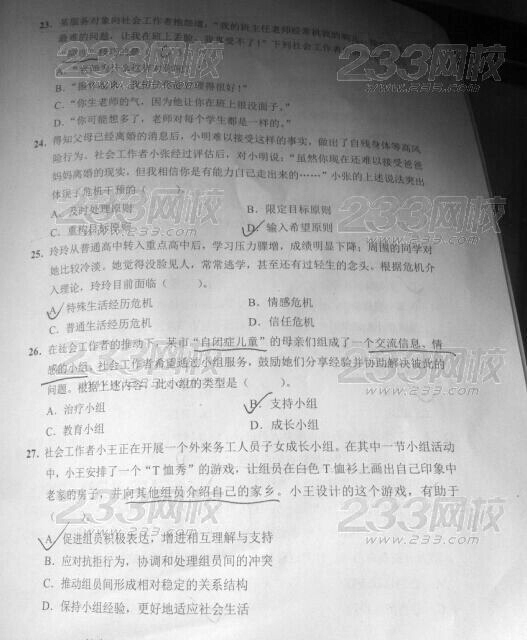 23. 某服务对象向社会工作者抱怨道，“我的班主任老师经常
最难的问题，让我在班上丢脸，我真受不了！”下列社会工作者
A. “
B. “ 处理得很好！”
C. “你生老师的气，因为他让你在班上很没面子。”
D. “你可能想多了，老师对每个学生都是一样的。”
24. 得知父母已经离婚的消息后，小明难以接受这样的事实，做出了自残身体等高风
险行为。社会工作者小张经过评估后，对小明说：“虽然你现在还难以接受爸爸
妈妈离婚的现实，但我相信你是有能力自己走出来的……”小张的上述说法突出
体现了危机干预的（ ）。
A. 及时处理原则 B. 限定目标原则
C. 重构目标原则 D. 输入希望原则
25. 玲玲从普通高中转入重点高中后，学习压力骤增，成绩明显下降；周围的同学对
她比较冷淡。她觉得没脸见人，常常逃学，甚至还有过轻生的念头。根据危机介
入理论，玲玲目前面临（ ）。
A. 特殊生活经历危机 B. 情感危机
C. 普通生活经历危机 D. 信任危机
26. 在社会工作者的推动下，某市“自闭症儿童”的母亲们组成了一个交流信息、情
感的小组。社会工作者希望通过小组服务，鼓励她们分享经验并协助解决彼此的
问题。根据上述内容，此小组的类型是（ ）。
A. 治疗小组 B. 支持小组
C. 教育小组 D. 成长小组
27. 社会工作者小王正在开展一个外来务工人员子女成长小组。在其中一节小组活动
中，小王安排了一个“T恤秀”的游戏，让组员在白色T恤衫上画出自己印象中
老家的房子，并向其他组员介绍自己的家乡。小王设计的这个游戏，有助于
（ ）
A. 促进组员积极表达，增进相互理解与支持
B. 应对抗拒行为，协调和处理组员间的冲突
C. 推动组员间形成相对稳定的关系结构
D. 保持小组经验，更好地适应社会生活
233网校
www.233.com